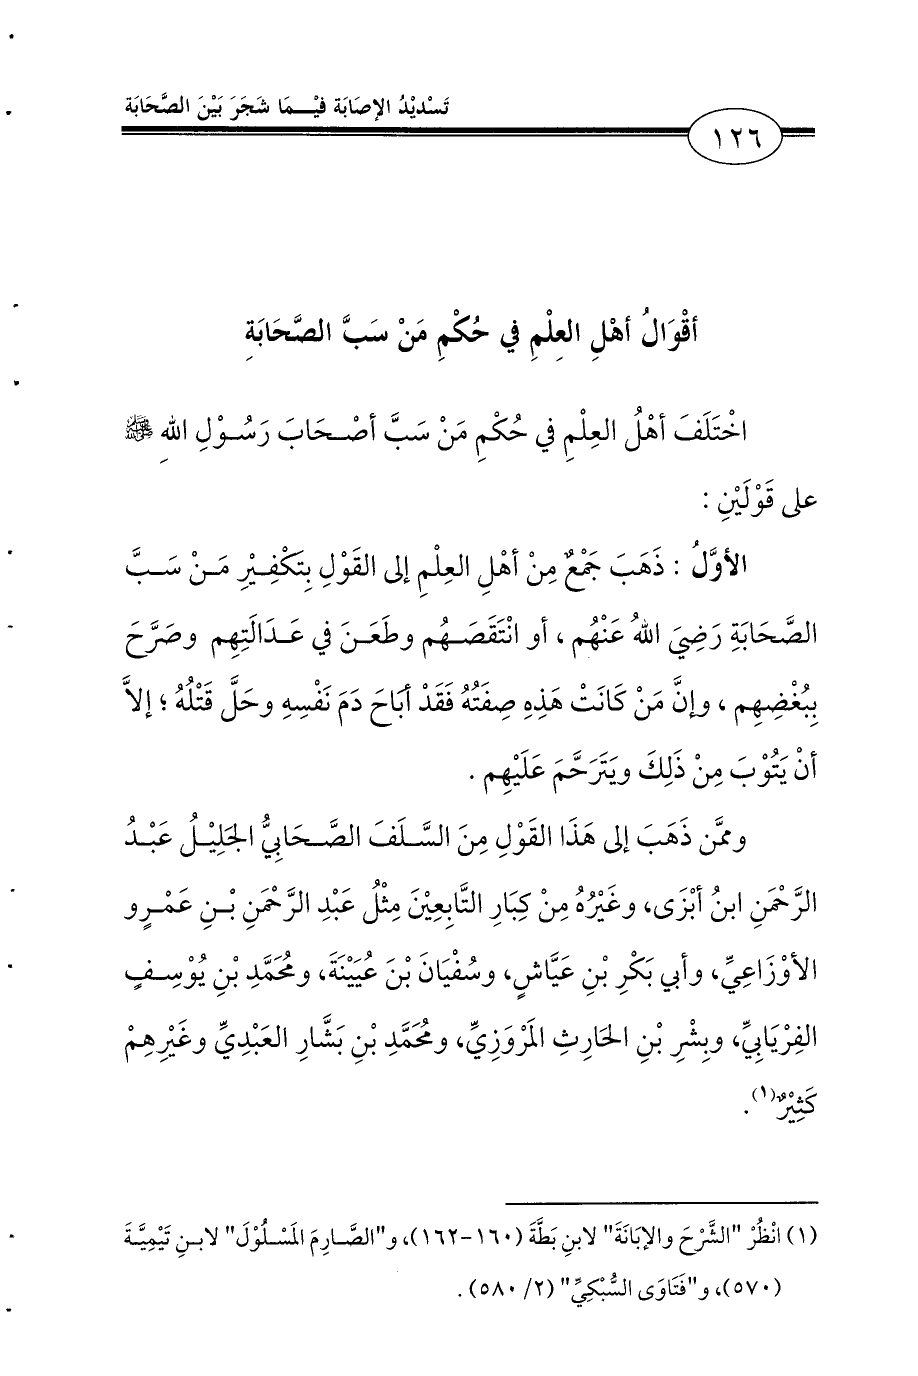 تَسْدِيْدُ الإصَابَة فيْـمَا شَجَرَ بَيْنَ الصَّحَابَة
١٢٦
أقْوَالُ أهْلِ العِلْمِ في حُكْمِ مَنْ سَبَّ الصَّحَابَةِ
اخْتَلَفَ أهْلُ العِلْمِ في حُكْمِ مَنْ سَبَّ أصْحَابَ رَسُوْلِ اللهِ ﷺ
على قَوْلَيْنِ :
الأوَّلُ : ذَهَبَ جَمْعٌ مِنْ أهْلِ العِلْمِ إلى القَوْلِ بِتَكْفِيْرِ مَنْ سَبَّ
الصَّحَابَةِ رَضِيَ اللهُ عَنْهُم ، أو انْتَقَصَهُم وطَعَنَ في عَدَالَتِهِم وصَرَّحَ
بِبُغْضِهِم ، وإنَّ مَنْ كَانَتْ هَذِهِ صِفَتُهُ فَقَدْ أبَاحَ دَمَ نَفْسِهِ وحَلَّ قَتْلُهُ ؛ إلاَّ
أنْ يَتُوْبَ مِنْ ذَلِكَ ويَتَرَحَّمَ عَلَيْهِم .
وممَّن ذَهَبَ إلى هَذَا القَوْلِ مِنَ السَّلَفَ الصَّحَابيُّ الجَلِيْلُ عَبْدُ
الرَّحْمَنِ ابنُ أبْزَى، وغَيْرُهُ مِنْ كِبَارِ التَّابِعِيْنَ مِثْلُ عَبْدِ الرَّحْمَنِ بْنِ عَمْرٍو
الأوْزَاعِيِّ، وأبي بَكْرِ بْنِ عَيَّاشٍ، وسُفْيَانَ بْنَ عُيَيْنَةَ، ومُحَمَّدِ بْنِ يُوْسِفٍ
الفِرْيَابيِّ، وبِشْرِ بْنِ الحَارِثِ المَرْوَزِيِّ، ومُحَمَّدِ بْنِ بَشَّارِ العَبْدِيِّ وغَيْرِهِمْ
كَثِيْرٌ(١).
(١) انْظُرْ "الشَّرْحَ والإبَانَةَ" لابنِ بَطَّةَ (١٦٠-١٦٢)، و"الصَّارِمَ المَسْلُوْلَ" لابنِ تَيْمِيَّةَ
(٥٧٠)، و"فَتَاوَى السُّبْكِيِّ" (٢/ ٥٨٠) .